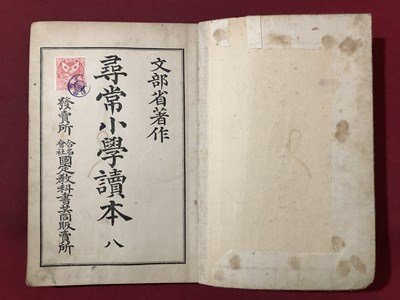 文部省著作
尋常小學讀本 八
發賣所 合名會社 國定敎科書共同販賣所